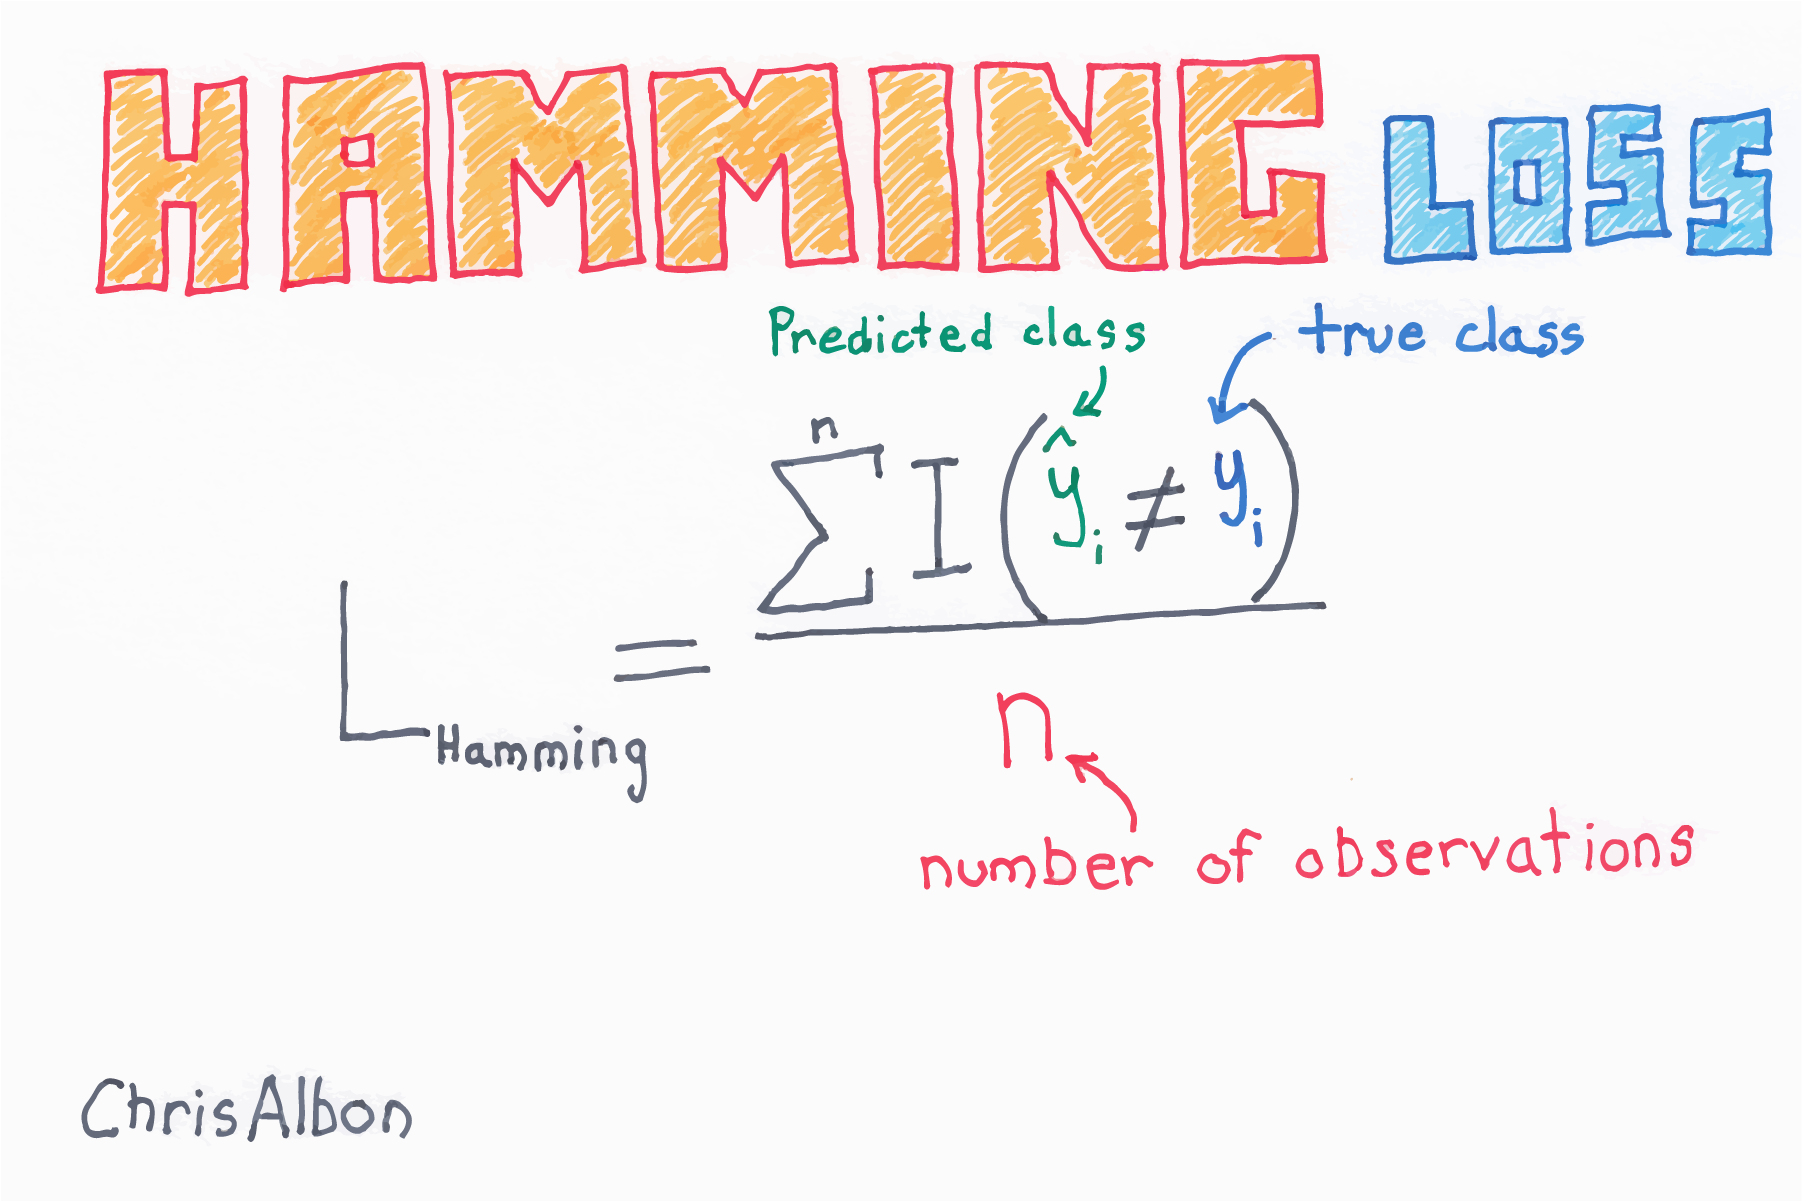 HAMMING LOSS
Predicted class
true class
n
∑ I (ŷi ≠ yi)
L Hamming =
n
number of observations
ChrisAlbon